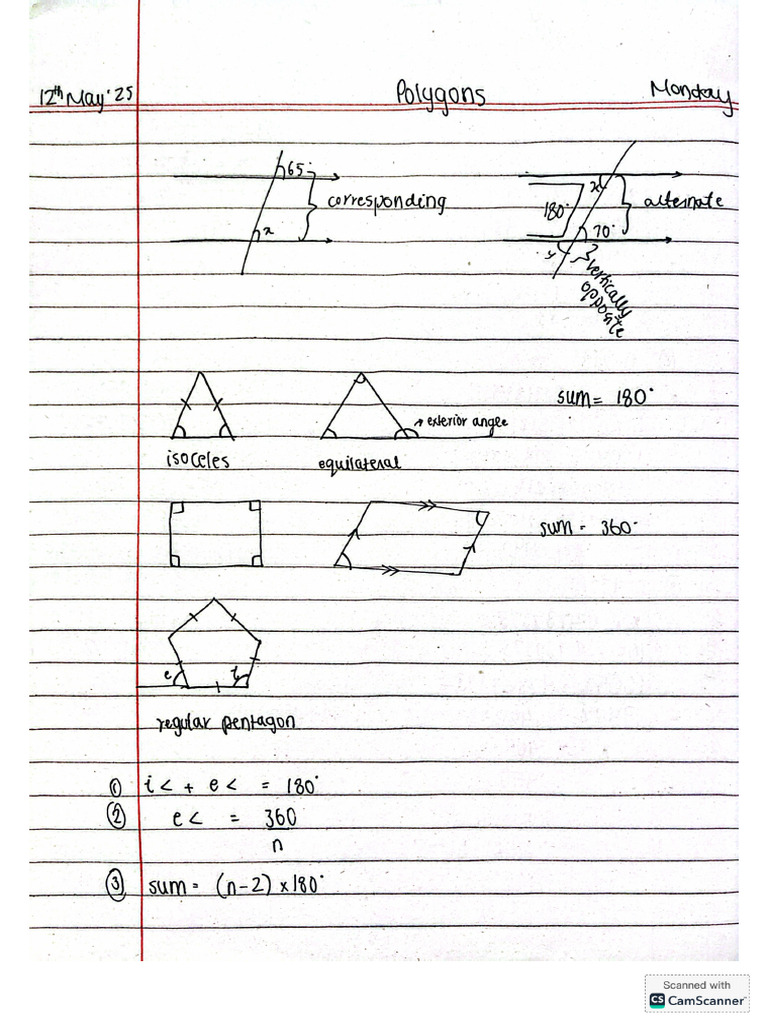 12th May '25
Polygons
Monday
65°
x
corresponding
x
180°
70°
y
alternate
vertically
opposite
isoceles
equilateral
exterior angle
sum = 180°
sum = 360°
e
i
regular pentagon
① i< + e< = 180°
② e< = 360
n
③ sum = (n-2) × 180°
Scanned with
CS CamScanner